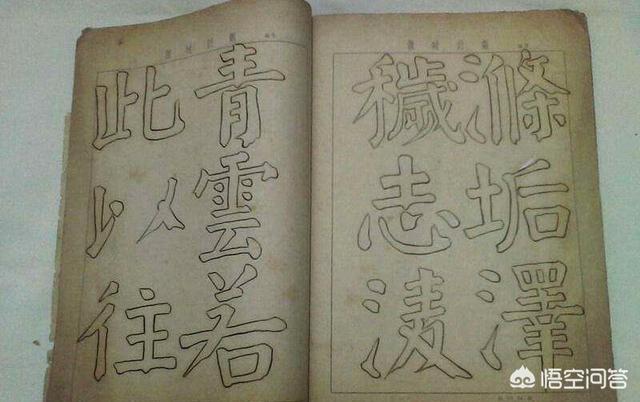 滌垢澤
穢志淩
青雲若
此以往
悟空问答